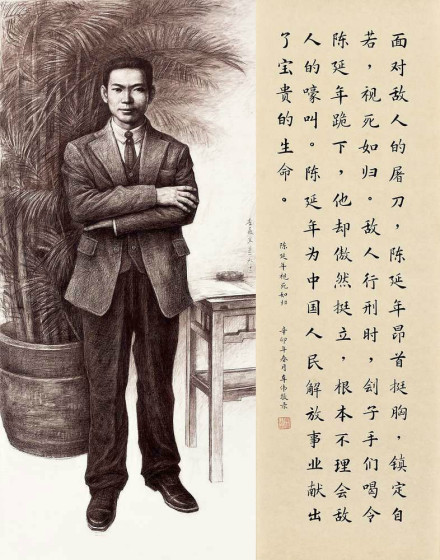 面对敌人的屠刀，陈延年昂首挺胸，镇定自
若，视死如归。敌人行刑时，刽子手们喝令
陈延年跪下，他却傲然挺立，根本不理会敌
人的嚎叫。陈延年为中国人民解放事业献出
了宝贵的生命。
陈延年视死如归
辛卯年春月车伟敬录